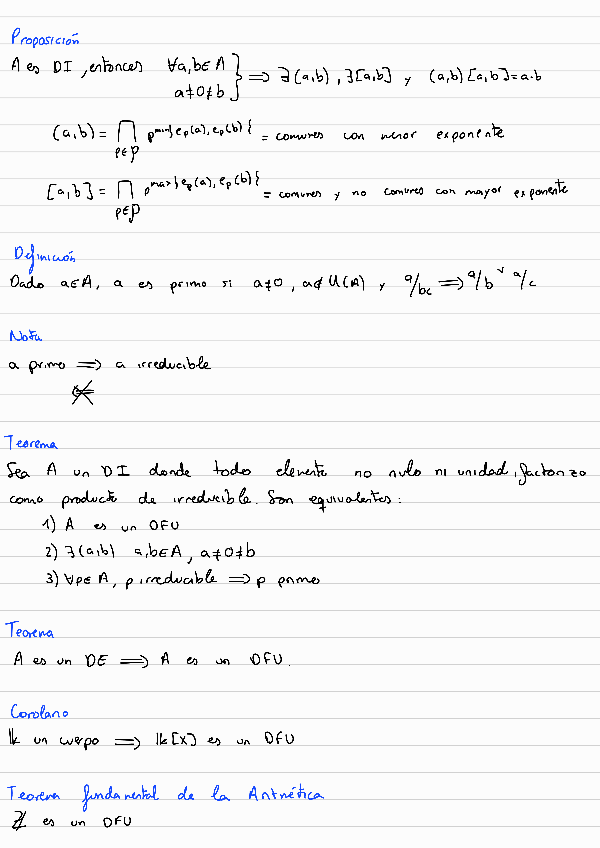 Proposición
A es DI, entonces ∀a,b∈A
a≠0≠b } ⟹ ∃(a,b), ∃[a,b] y (a,b)[a,b]=a·b
(a,b) = ∏_{p∈P} p^{min{e_p(a), e_p(b)}} = comunes con menor exponente
[a,b] = ∏_{p∈P} p^{max{e_p(a), e_p(b)}} = comunes y no comunes con mayor exponente
Definición
Dado a∈A, a es primo si a≠0, a∉U(A) y a/bc ⟹ a/b ∨ a/c
Nota
a primo ⟹ a irreducible
⇍
Teorema
Sea A un DI donde todo elemento no nulo ni unidad, factoriza
como producto de irreducible. Son equivalentes:
1) A es un DFU
2) ∃(a,b) a,b∈A, a≠0≠b
3) ∀p∈A, p irreducible ⟹ p primo
Teorema
A es un DE ⟹ A es un DFU.
Corolario
𝕜 un cuerpo ⟹ 𝕜[X] es un DFU
Teorema fundamental de la Aritmética
ℤ es un DFU